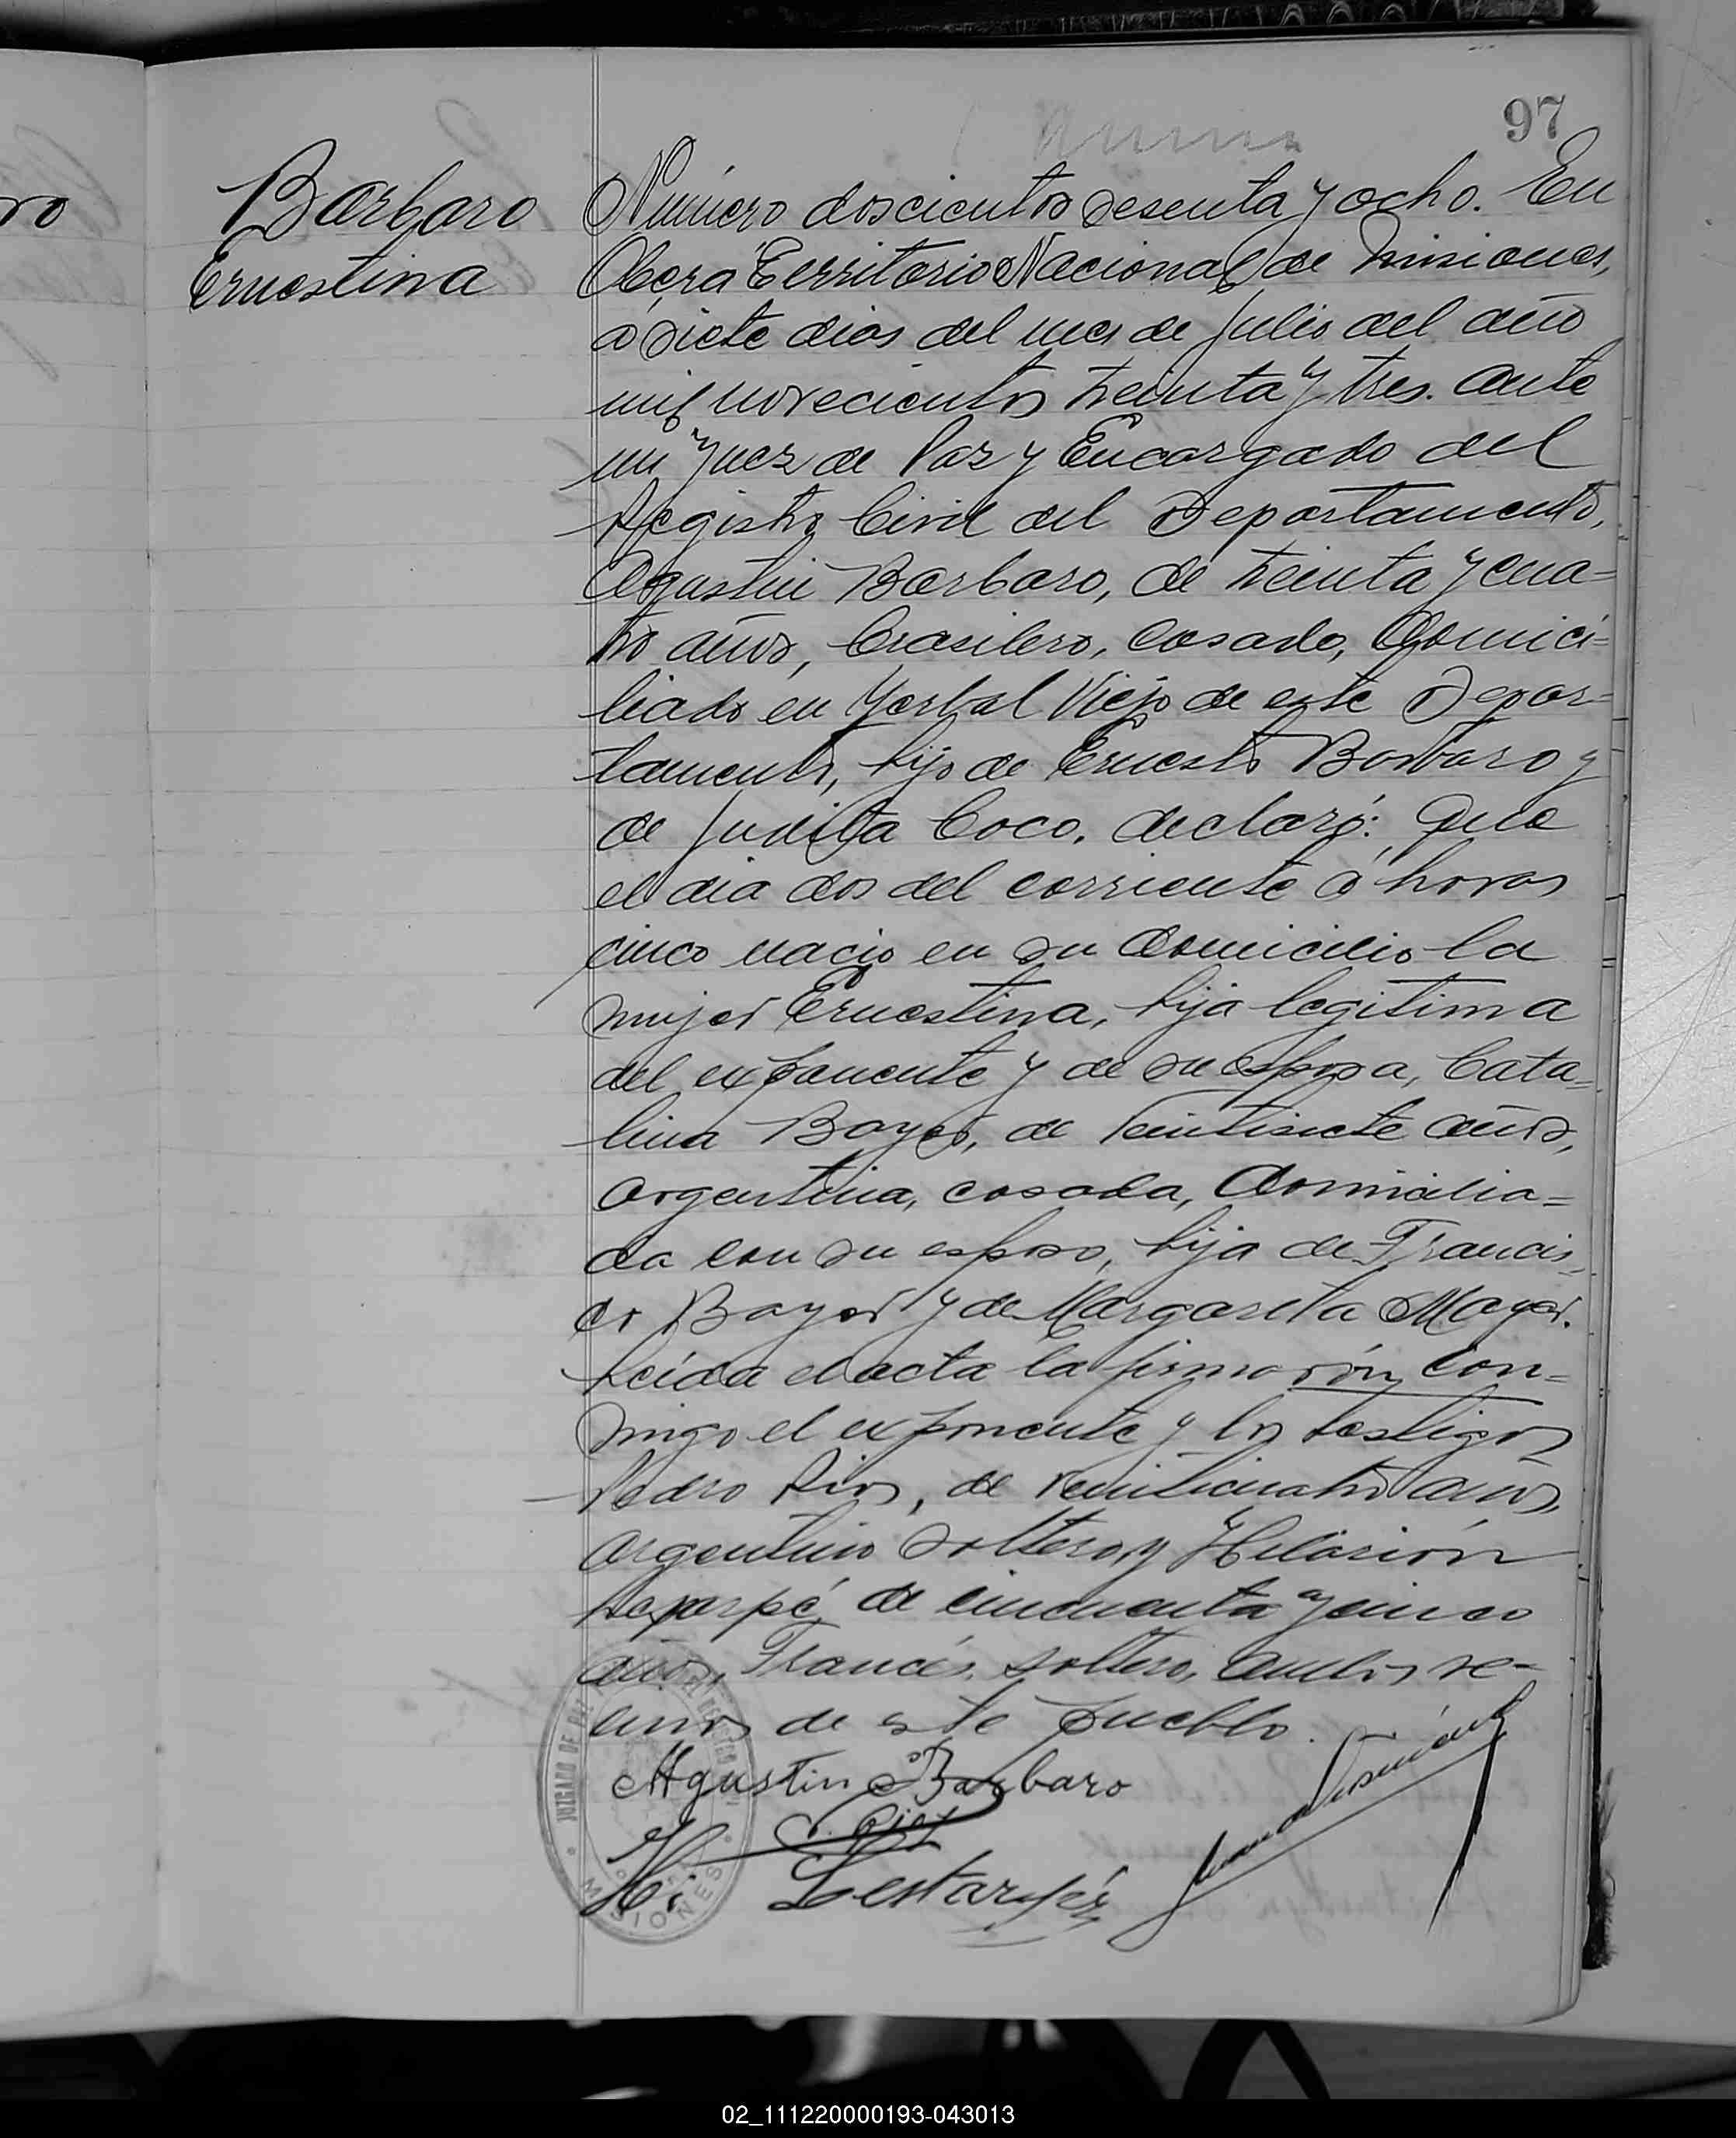 97
Barbaro
Ernestina
Número doscientos sesenta y ocho. En
Oberá Territorio Nacional de Misiones,
a siete dias del mes de Julio del año
mil novecientos treinta y tres. Ante
mi Juez de Paz y Encargado del
Registro Civil del Departamento,
Agustin Barbaro, de treinta y cua=
tro años, brasilero, casado, domici=
liado en Yerbal Viejo de este Depar=
tamento, hijo de Ernesto Barbaro y
de Coco, declaró: Que
el dia dos del corriente á horas
cinco nació en su domicilio la
mujer Ernestina, hija legitima
del exponente y de su esposa, Cata=
lina Bayer, de veintisiete años,
argentina, casada, domicilia=
da con su esposo, hija de Francis=
co Bayer y de Margarita Mayer.
Leida el acta la firmarón con=
migo el exponente y los testigos
Pedro Rios, de veinticuatro años,
argentino soltero, y Hilarión
de cincuenta y cinco
años, Francés, soltero, ambos ve=
cinos de este pueblo.
Agustin Barbaro
H. Lestarpés
JUZGADO DE
MISIONES
02_111220000193-043013